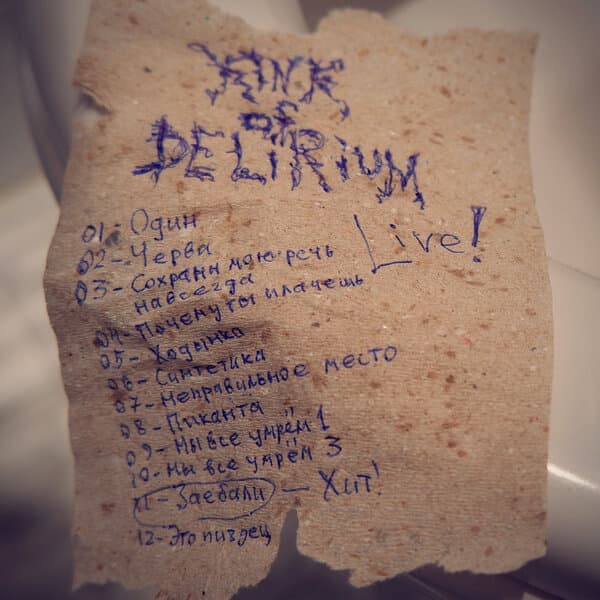 KINK
of
DELIRIUM
Live!
01- Один
02- Черва
03- Сохрани мою речь
навсегда
04- Почему ты плачешь
05- Ходынка
06- Синтетика
07- Неправильное место
08- Пиканта
09- Мы все умрём 1
10- Мы все умрём 3
11- Заебали — Хит!
12- Это пиздец